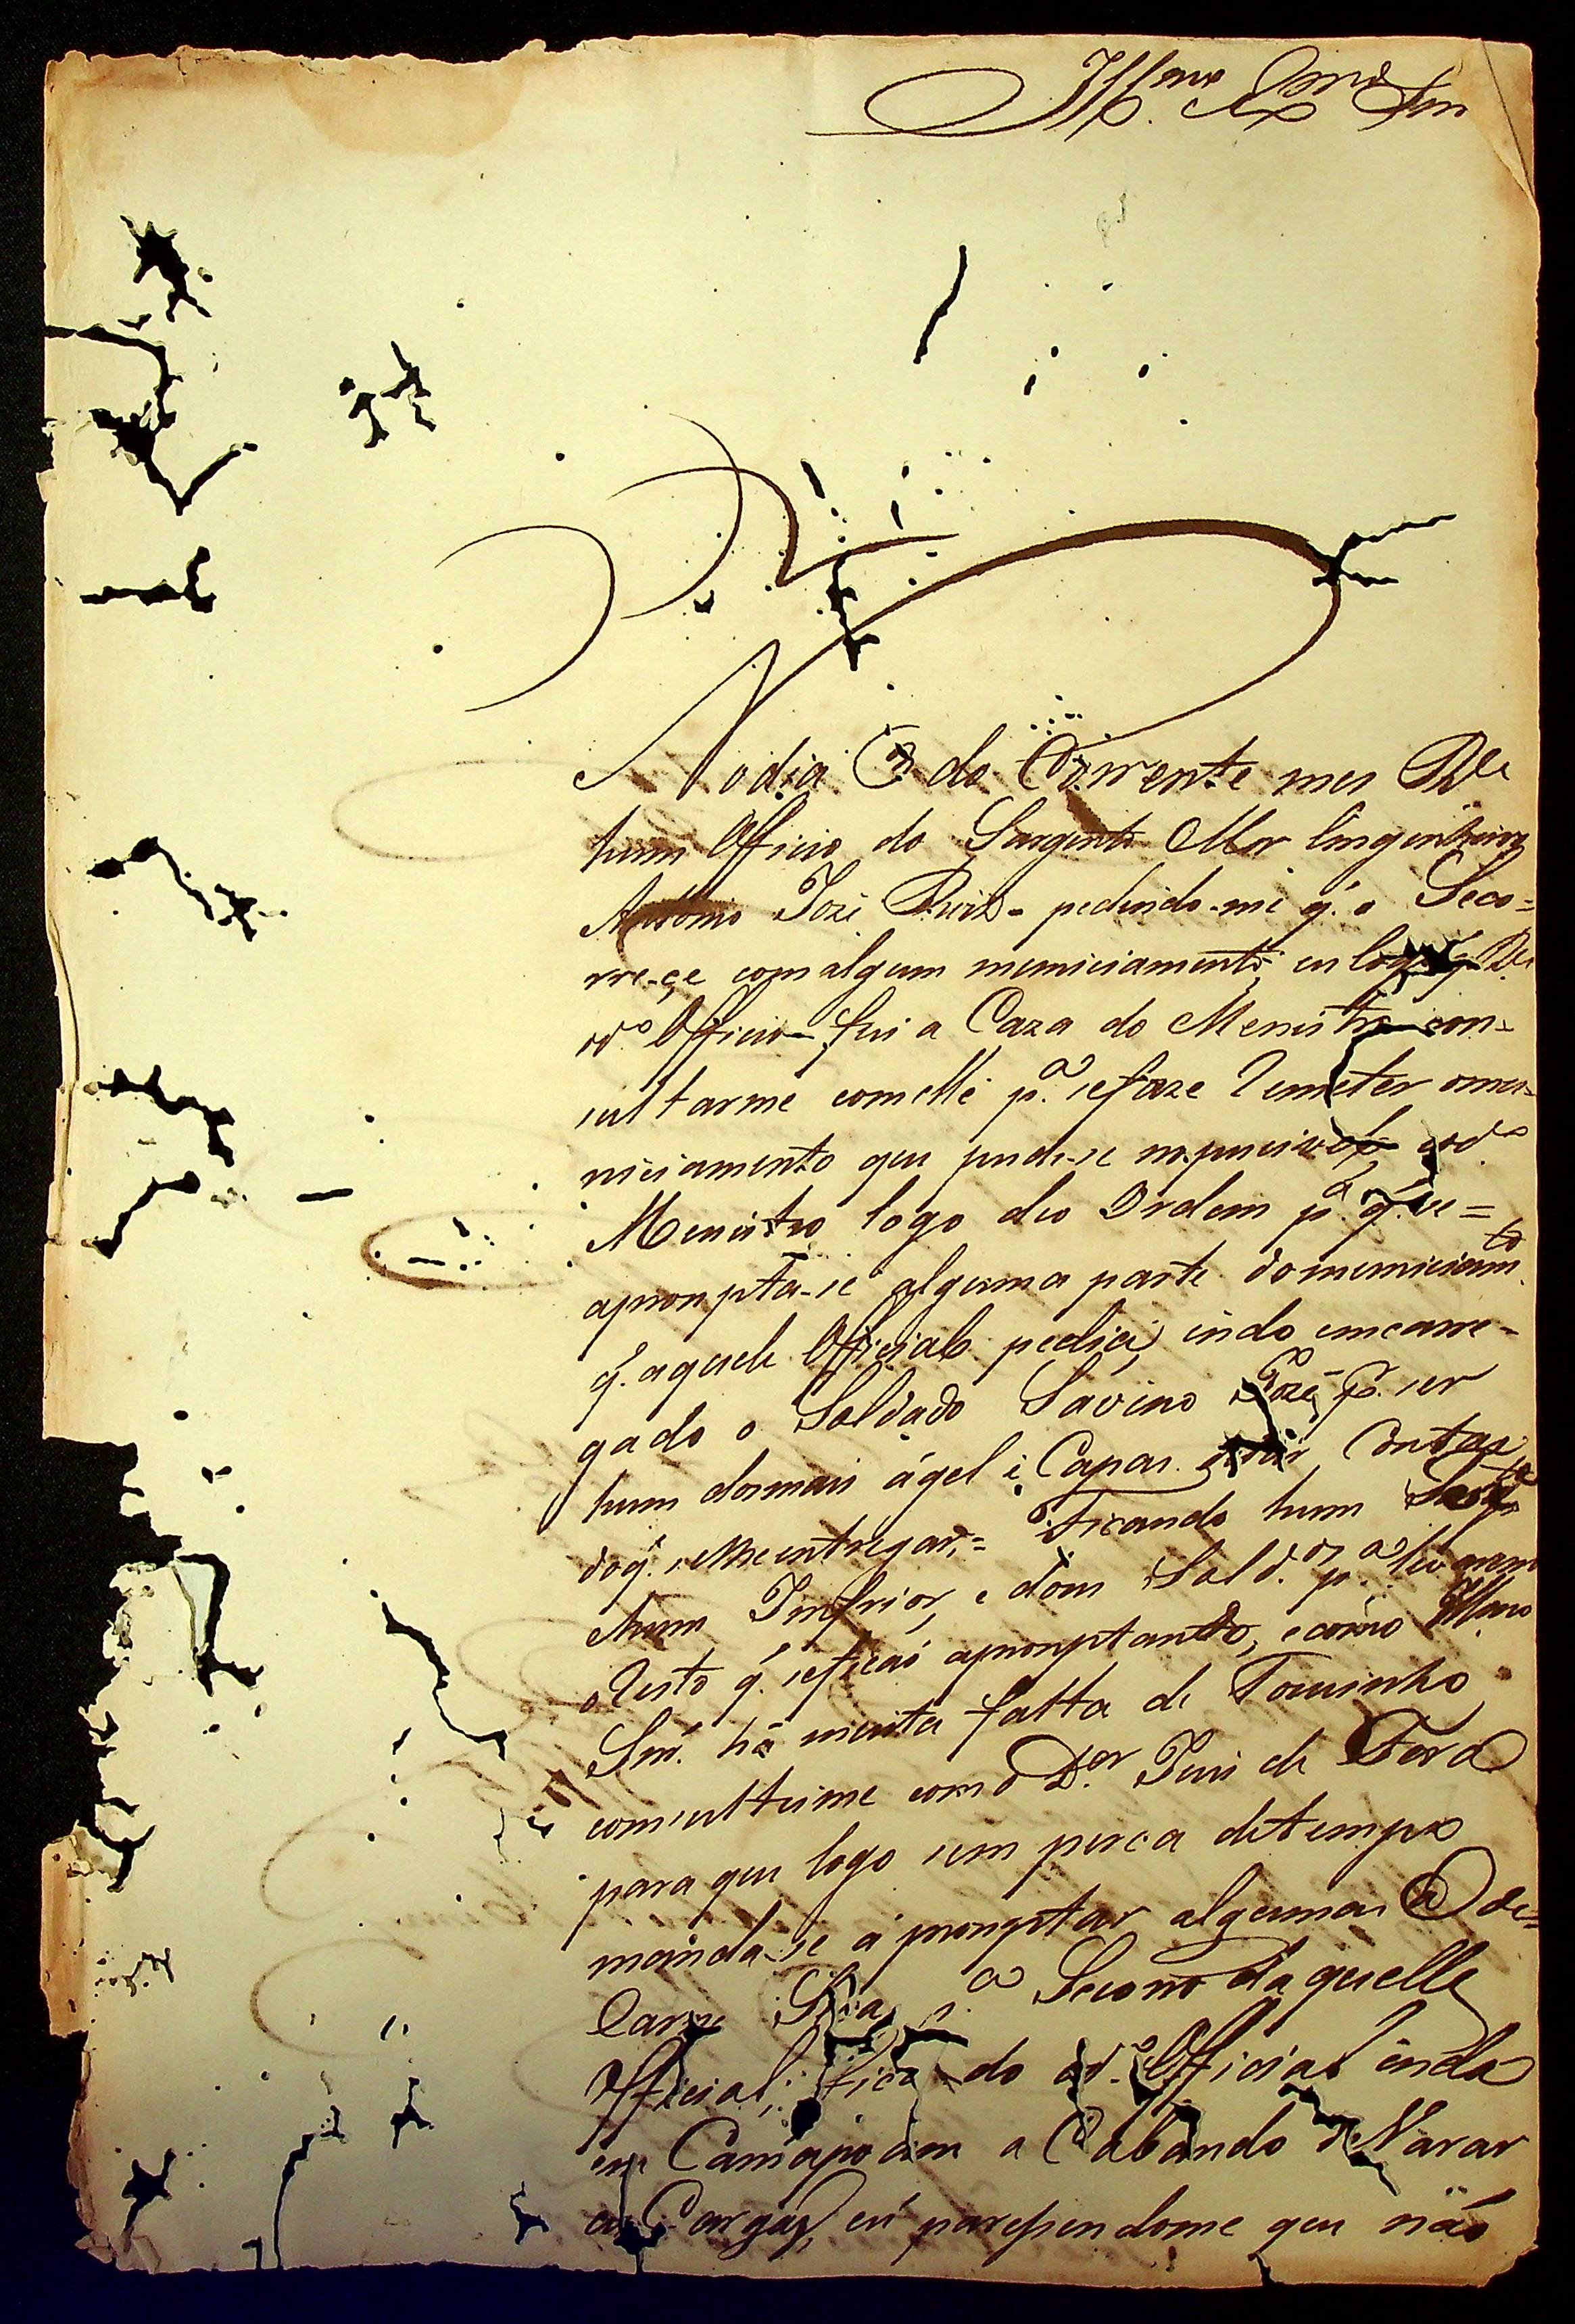 Illmo Exmo Snr
No dia 3 do Corrente mes Re
hum Officio do Sargento Mor Emgenheiro
Antonio Jozé Ruiz - pedindo-me q. o Seco=
rre-çe com algum municiamento, eu logo q Re
o do Officio fui a Caza do Menistro con-
sultarme com elle pa. se faze Remeter o mu-
niciamento que pude-se ód.o
Menistro logo deo Ordem pa. q. se=
apronpta-se alguma parte do municiamto.
q. aquele Official pedia, indo emcarre-
gado o Soldado Savino Jozé, pr. ser
hum dos mais ágel e Capas Contas
doq. selhe entregar,= Ficando hum
hum Imfrior, e dous Sold.os pa. levarem
o Resto q. se ficaó apronptando, e como Illmo
Snr. há muita falta de Toucinho
comsulteime com o Dor. Juis de Fora
para que logo sem perca de tempo
manda-se apronptar algumas @ de=
Carne Sêca pa Secorro daquelle
Official, ficando od.o Official inda
em Camapoam a Cabando de Varar
as Cargas, eu parependome que não